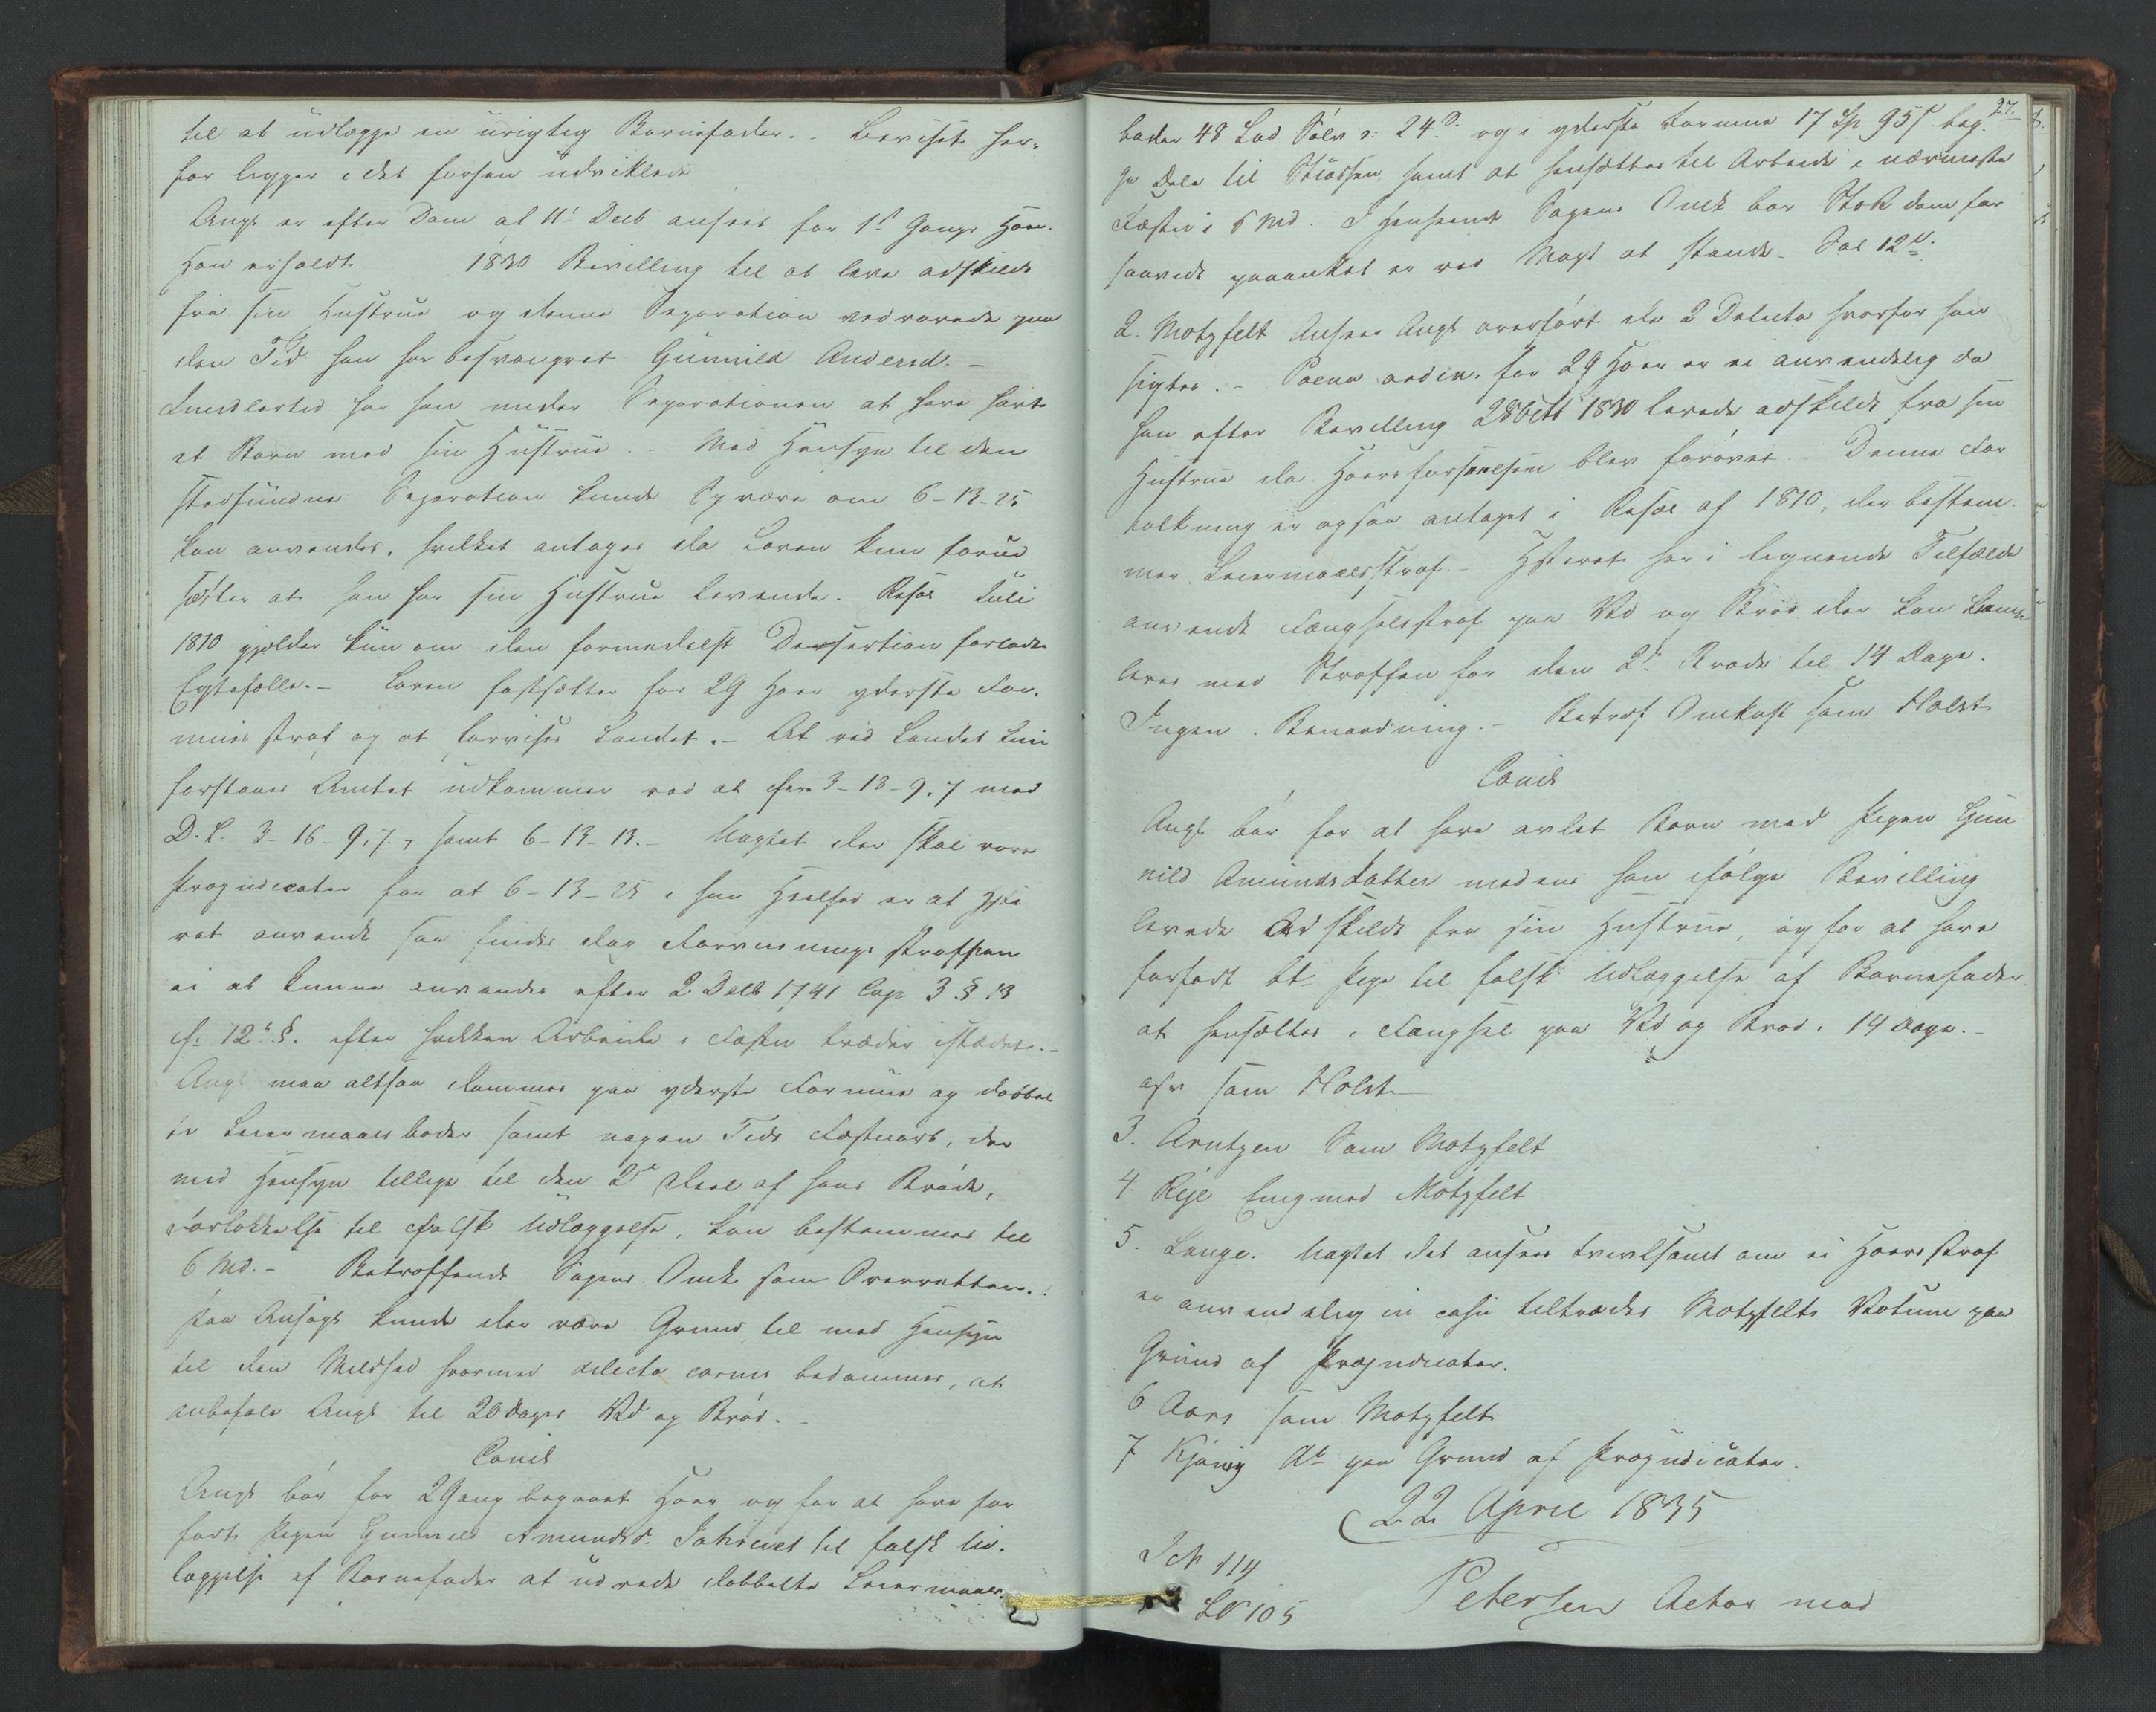 til at udlægge en urigtig Barnefader. - Beviset her-
for ligger i det forhen udviklede
Angk er efter Dom af 11' Decb anseet for 1ste Gangs Hoer.
Han erholdt 1830 Bevilling til at leve adskildt
fra sin Hustrue og denne Separation vedvarede paa
den Tid han har besvangret Gunnild Andersd. -
Imidlertid har han under Separationen at have havt
et Barn med sin Hustrue. - Med Hensyn til den
stedfundne Separation kunde Sp være om 6-13-25
kan anvendes, hvilket antages da Loven kun forud
sætter at han har sin Hustrue levende. Resol Juli
1810 gjælder kun om den formedelst Desertion forladte
Egtefælle. - Loven fastsætter for 2 G Hoer yderste For-
mues straf og at forvises Landet. - At ved Landet kun
forstaaes Amtet udkommer ved at sml 3-18-9,7 med
D. L. 3-16-9,7, samt 6-13-13. - Uagtet der skal være
Præjudicater for at 6-13-25 i sin Heelhed er af Høie
ret anvendt saa findes dog Forviisnings straffen
ei at kunne anvendes efter 2 Decb 1741 Cap 3 § 13
cfr 12te §. efter hvilken Arbeide i Fæstn træder istedet. -
Angk maa altsaa dømmes paa yderste Formue og dobbel
te Leiermaalsbøder samt nogen Tids Fæstnarb, der
med Hensyn tillige til den 2den Deel af hans Brøde,
Forlokkelse til falsk Udlæggelse, kan bestemmes til
6 Md. - Betræffende Sagens Omk som Overretten.
kunde der være Grund til med Hensyn
til den Mildhed hvormed delicta carnis bedømmes, at
anbefale Angk til 20 Dages Vd og Brød. -
Concl
Angk bør for 2 Gang begaaet Hoer og for at have for
ført Pigen Gunnild Amundsd. til falsk Ud-
læggelse af Barnefader at udrede dobbelte Leiermaals-
27.
bøder 48 Lod Sølv o: 24 S. og i yderste Formue 17 Sp 95 s beg-
ge Dele til Statskassen, samt at hensættes til Arbeide i nærmeste
Fæstn i 6 Md. I Henseende Sagens Omk bør StOR dom for
saavidt paaanket er ved Magt at stande. Sal 12 Sp.
2. Motzfelt Anseer Angk overført de 2 Delicta hvorfor han
sigtes. - Poena ordin. for 2 G Hoer er ei anvendelig da
han efter Bevilling 28 Octb 1830 levede adskildt fra sin
Hustrue da Hoersforseelsen blev forøvet. - Denne For
tolkning er ogsaa antaget i Resol af 1810, der bestem-
mer Leiermaalsstraf. - HRet har i lignende Tilfælde
anvendt Fængselsstraf paa Vd og Brød der kan kumu
leres med Straffen for den 2den Brøde til 14 Dage.
Ingen Benaadning. - Betræf Omkost som Holst
Concl
Angk bør for at have avlet Barn med Pigen Gun
nild Amundsdatter medens han ifølge Bevilling
levede Adskildt fra sin Hustrue, og for at have
forført bte Pige til falsk Udlæggelse af Barnefader
at hensættes i Fængsel paa Vd og Brød i 14 Dage. -
osv som Holst
3. Arntzen Som Motzfelt
4 Rye Enig med Motzfelt
5. Lange. Uagtet det ansees tvivlsomt om ei Hoersstraf
er anvendelig in casu tiltrædes Motzfelts Votum paa
Grund af Præjudicater.
6 Aars som Motzfelt
7 Kjønig Do paa Grund af Præjudicater.
22 April 1835
JN 114
LN 105
Petersen Actor mod